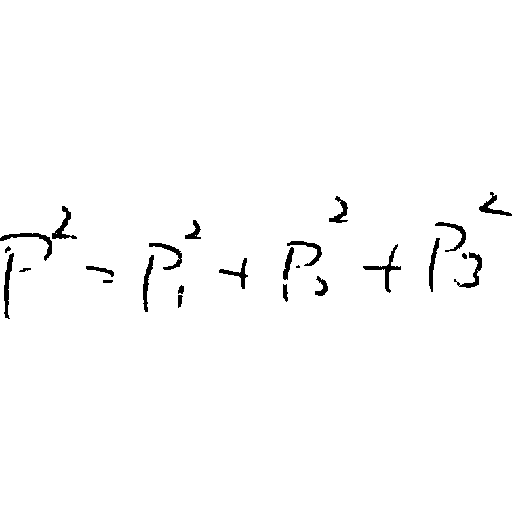 P² = P₁² + P₂² + P₃²